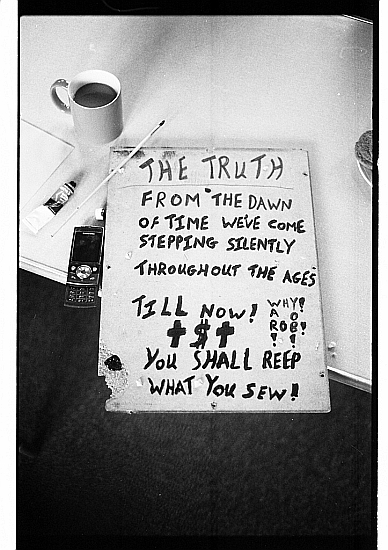 THE TRUTH
FROM THE DAWN
OF TIME WE'VE COME
STEPPING SILENTLY
THROUGHOUT THE AGES
TILL NOW!
WHY!
A O
ROB!
! !
†$†
YOU SHALL REEP
WHAT YOU SEW!